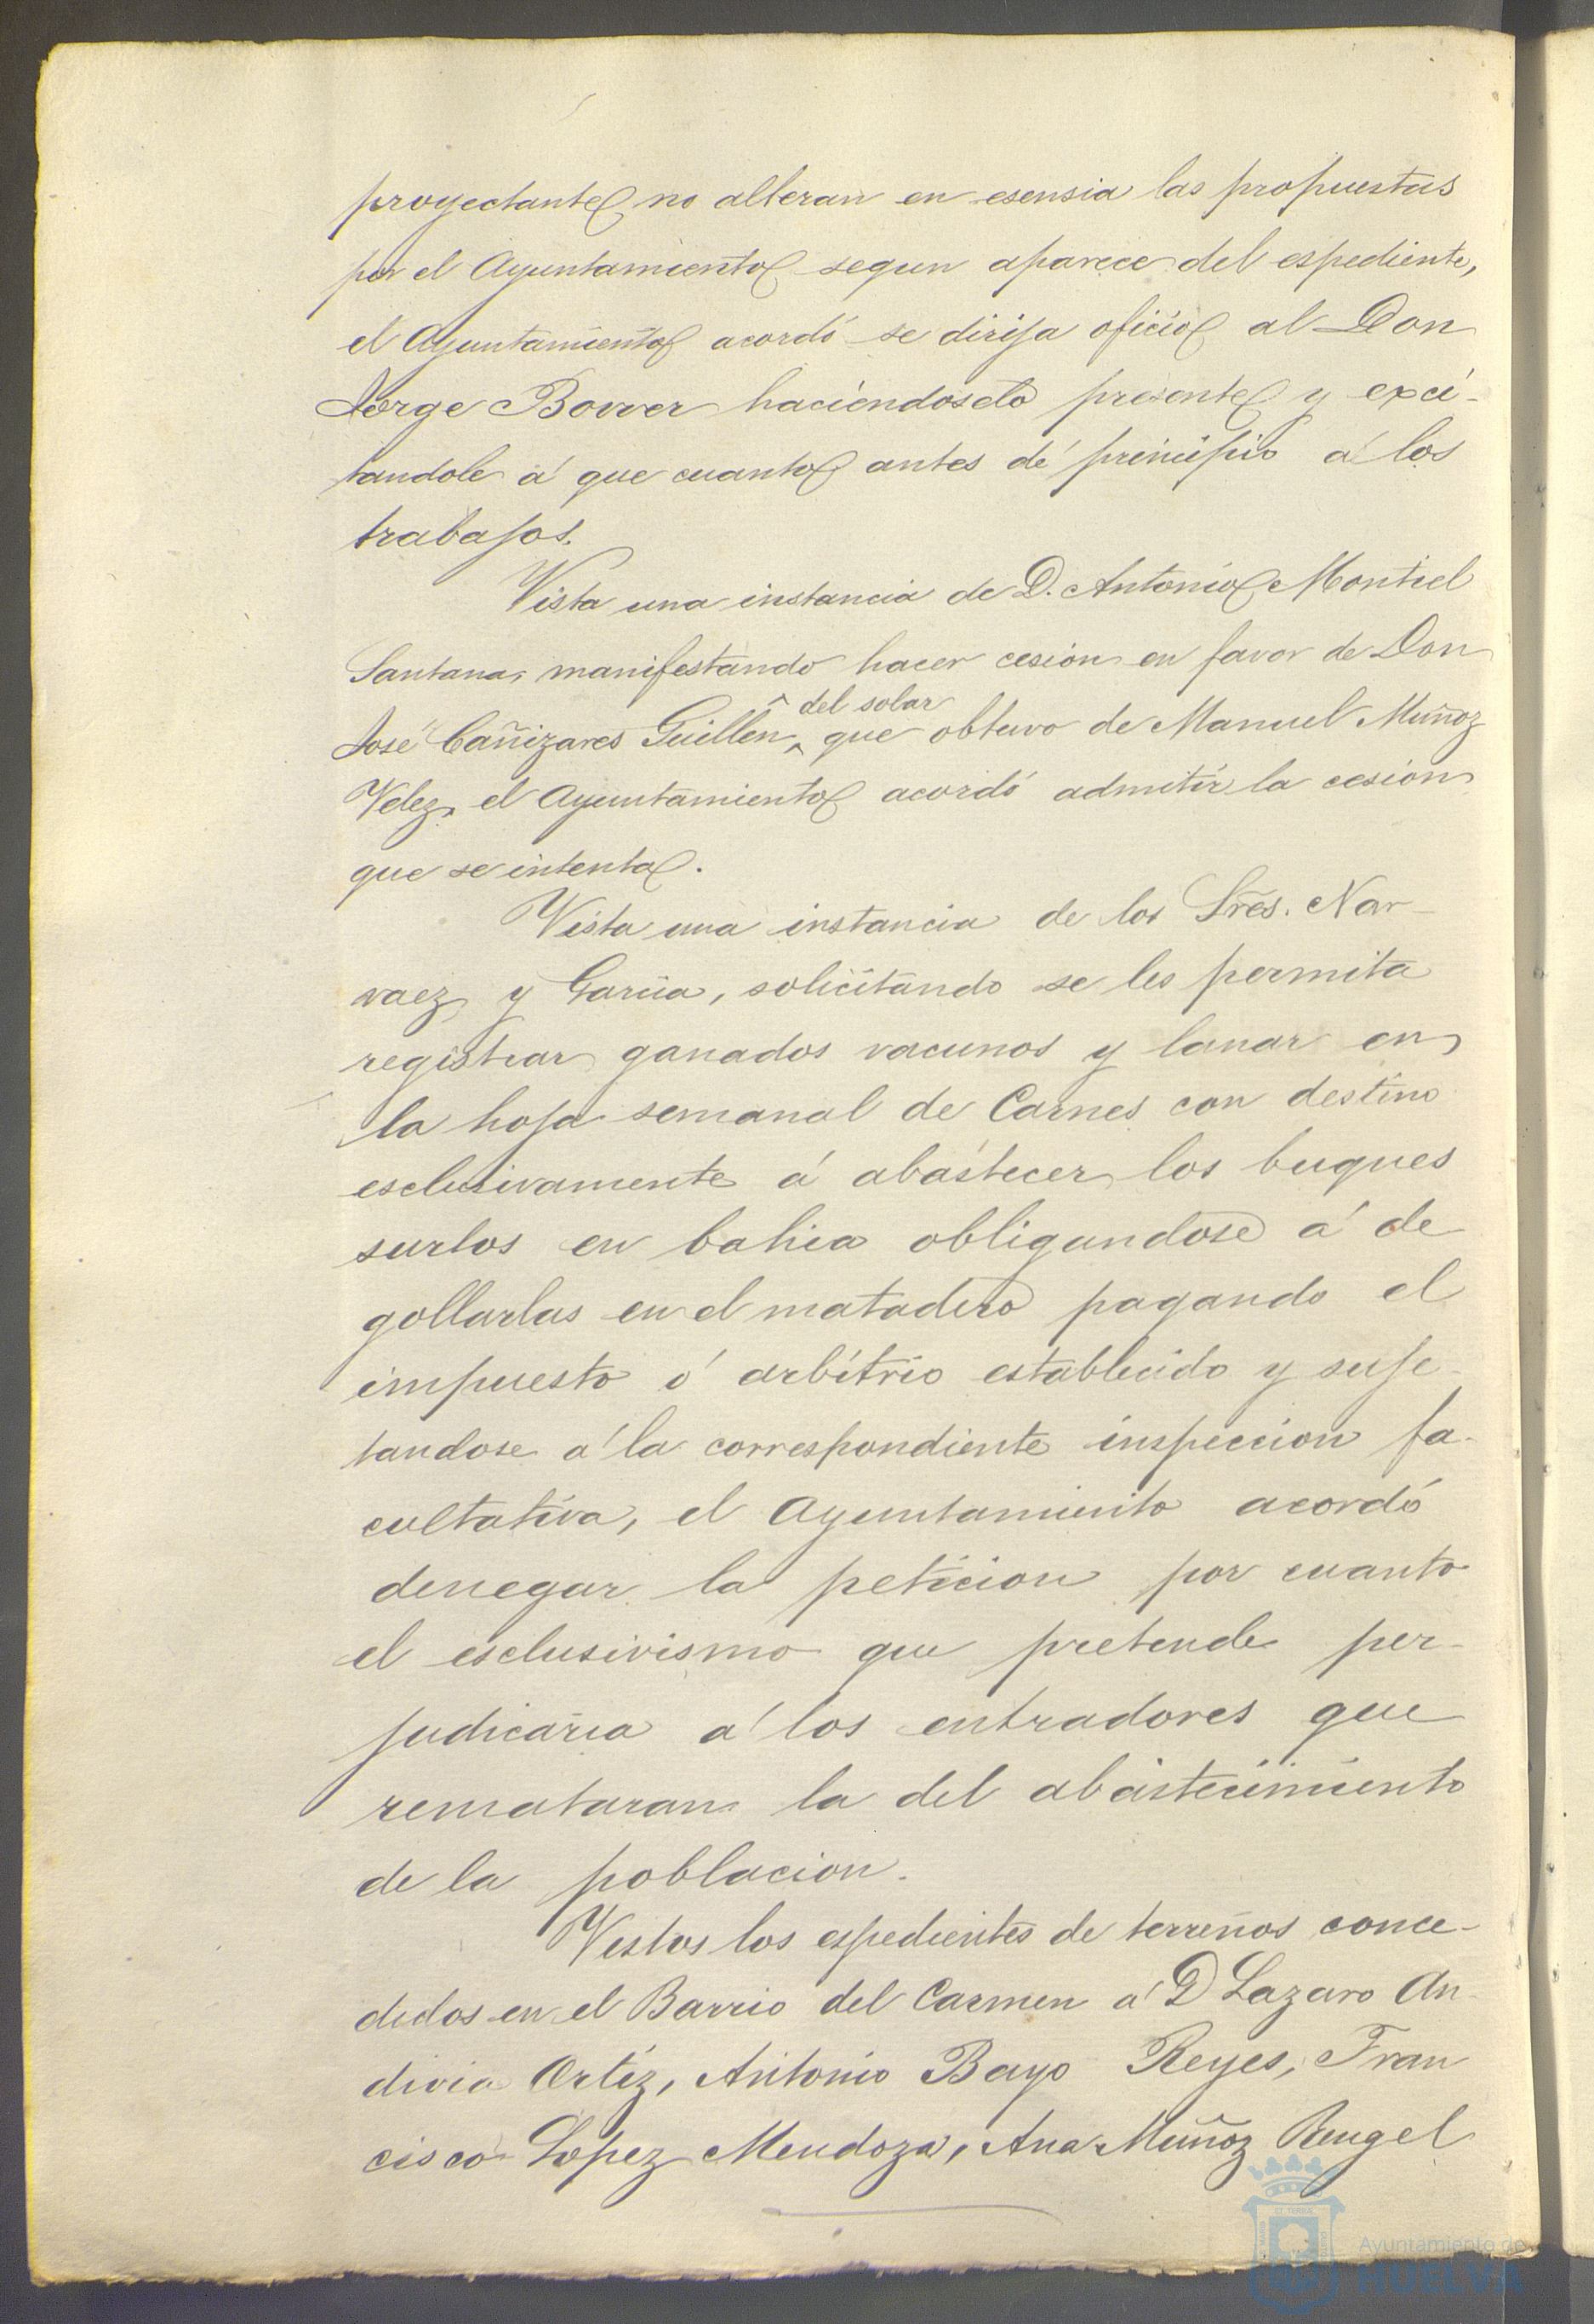 proyectante, no alteran en esensia las propuestas
por el Ayuntamiento, segun aparece del espediente,
el Ayuntamiento acordó se dirija oficio al Don
Jorge Bower haciendoselo presente y exci-
tandole á que cuanto antes dé principio á los
trabajos.
Vista una instancia de D. Antonio Montiel
Santana, manifestando hacer cesion en favor de Don
del solar
José Cañizares Guillen, que obtuvo de Manuel Muñoz
Velez, el Ayuntamiento acordó admitir la cesion
que se intenta.
Vista una instancia de los Sres. Nar-
vaez y Garcia, solicitando se les permita
registrar ganados vacunos y lanar en
la hoja semanal de Carnes con destino
esclusivamente á abastecer los buques
surtos en bahia obligandose á de
gollarlas en el matadero pagando el
impuesto ó arbitrio establecido y suje-
tandose á la correspondiente inspeccion fa-
cultativa, el Ayuntamiento acordó
denegar la peticion por cuanto
el esclusivismo que pretende per-
judicaria á los entradores que
remataran la del abastecimiento
de la poblacion.
Vistos los espedientes de terrenos conce-
didos en el Barrio del Carmen á D Lazaro An-
divia Ortiz, Antonio Bayo Reyes, Fran
cisco Lopez Mendoza, Ana Muñoz Rengel
Ayuntamiento de
HUELVA